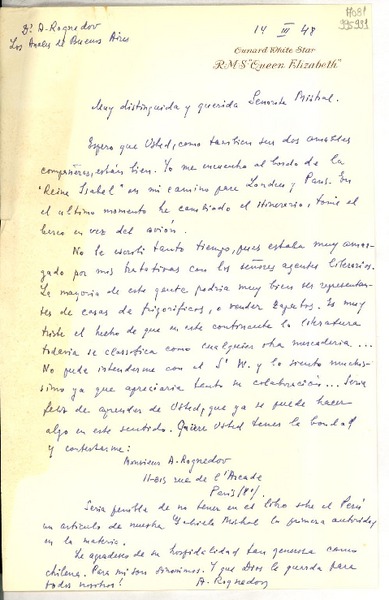 Dr. A. Rognedov
Los Anales de Buenos Aires
14 III 48
A081
995991
Cunard White Star
R.M.S. "Queen Elizabeth"
Muy distinguida y querida Señorita Mistral.
Espero que Usted, como tambien sus dos amables
compañeras, están bien. Yo me encuentro al bordo de la
"Reine Isabel" en mi camino para Londres y Paris. En
el ultimo momento he cambiado el itinerario, tomé el
barco en vez del avión.
No le escribí tanto tiempo, pues estaba muy amar-
gado por mis tratativas con los señores agentes literarios.
La mayoria de esta gente podria muy bien ser represantan-
tes de casas de frigorificos, o vender zapatos. Es muy
triste el hecho de que en este continente la literatura
todavia se classifica como cualquier otra mercaderia...
No pude intenderme con el Sr W. y lo siento muchis-
simo ya que apreciaria tanto su colaboración... Seria
feliz de aprender de Usted, que ya se puede hacer
algo en este sentido. Quiere Usted tener la bondad
y contestarme:
Monsieur A. Rognedov
rue de l'Arcade
Paris
Seria penible de no tener en el libro sobre el Perú
un articulo de nuestra Mistral la primera autoridad
en la materia.
Le agradesco de su hospitalidad tan generosa como
chilena. Para mi son sinonimos. Y que Dios le guarda para
todos nosotros!
A. Rognedov